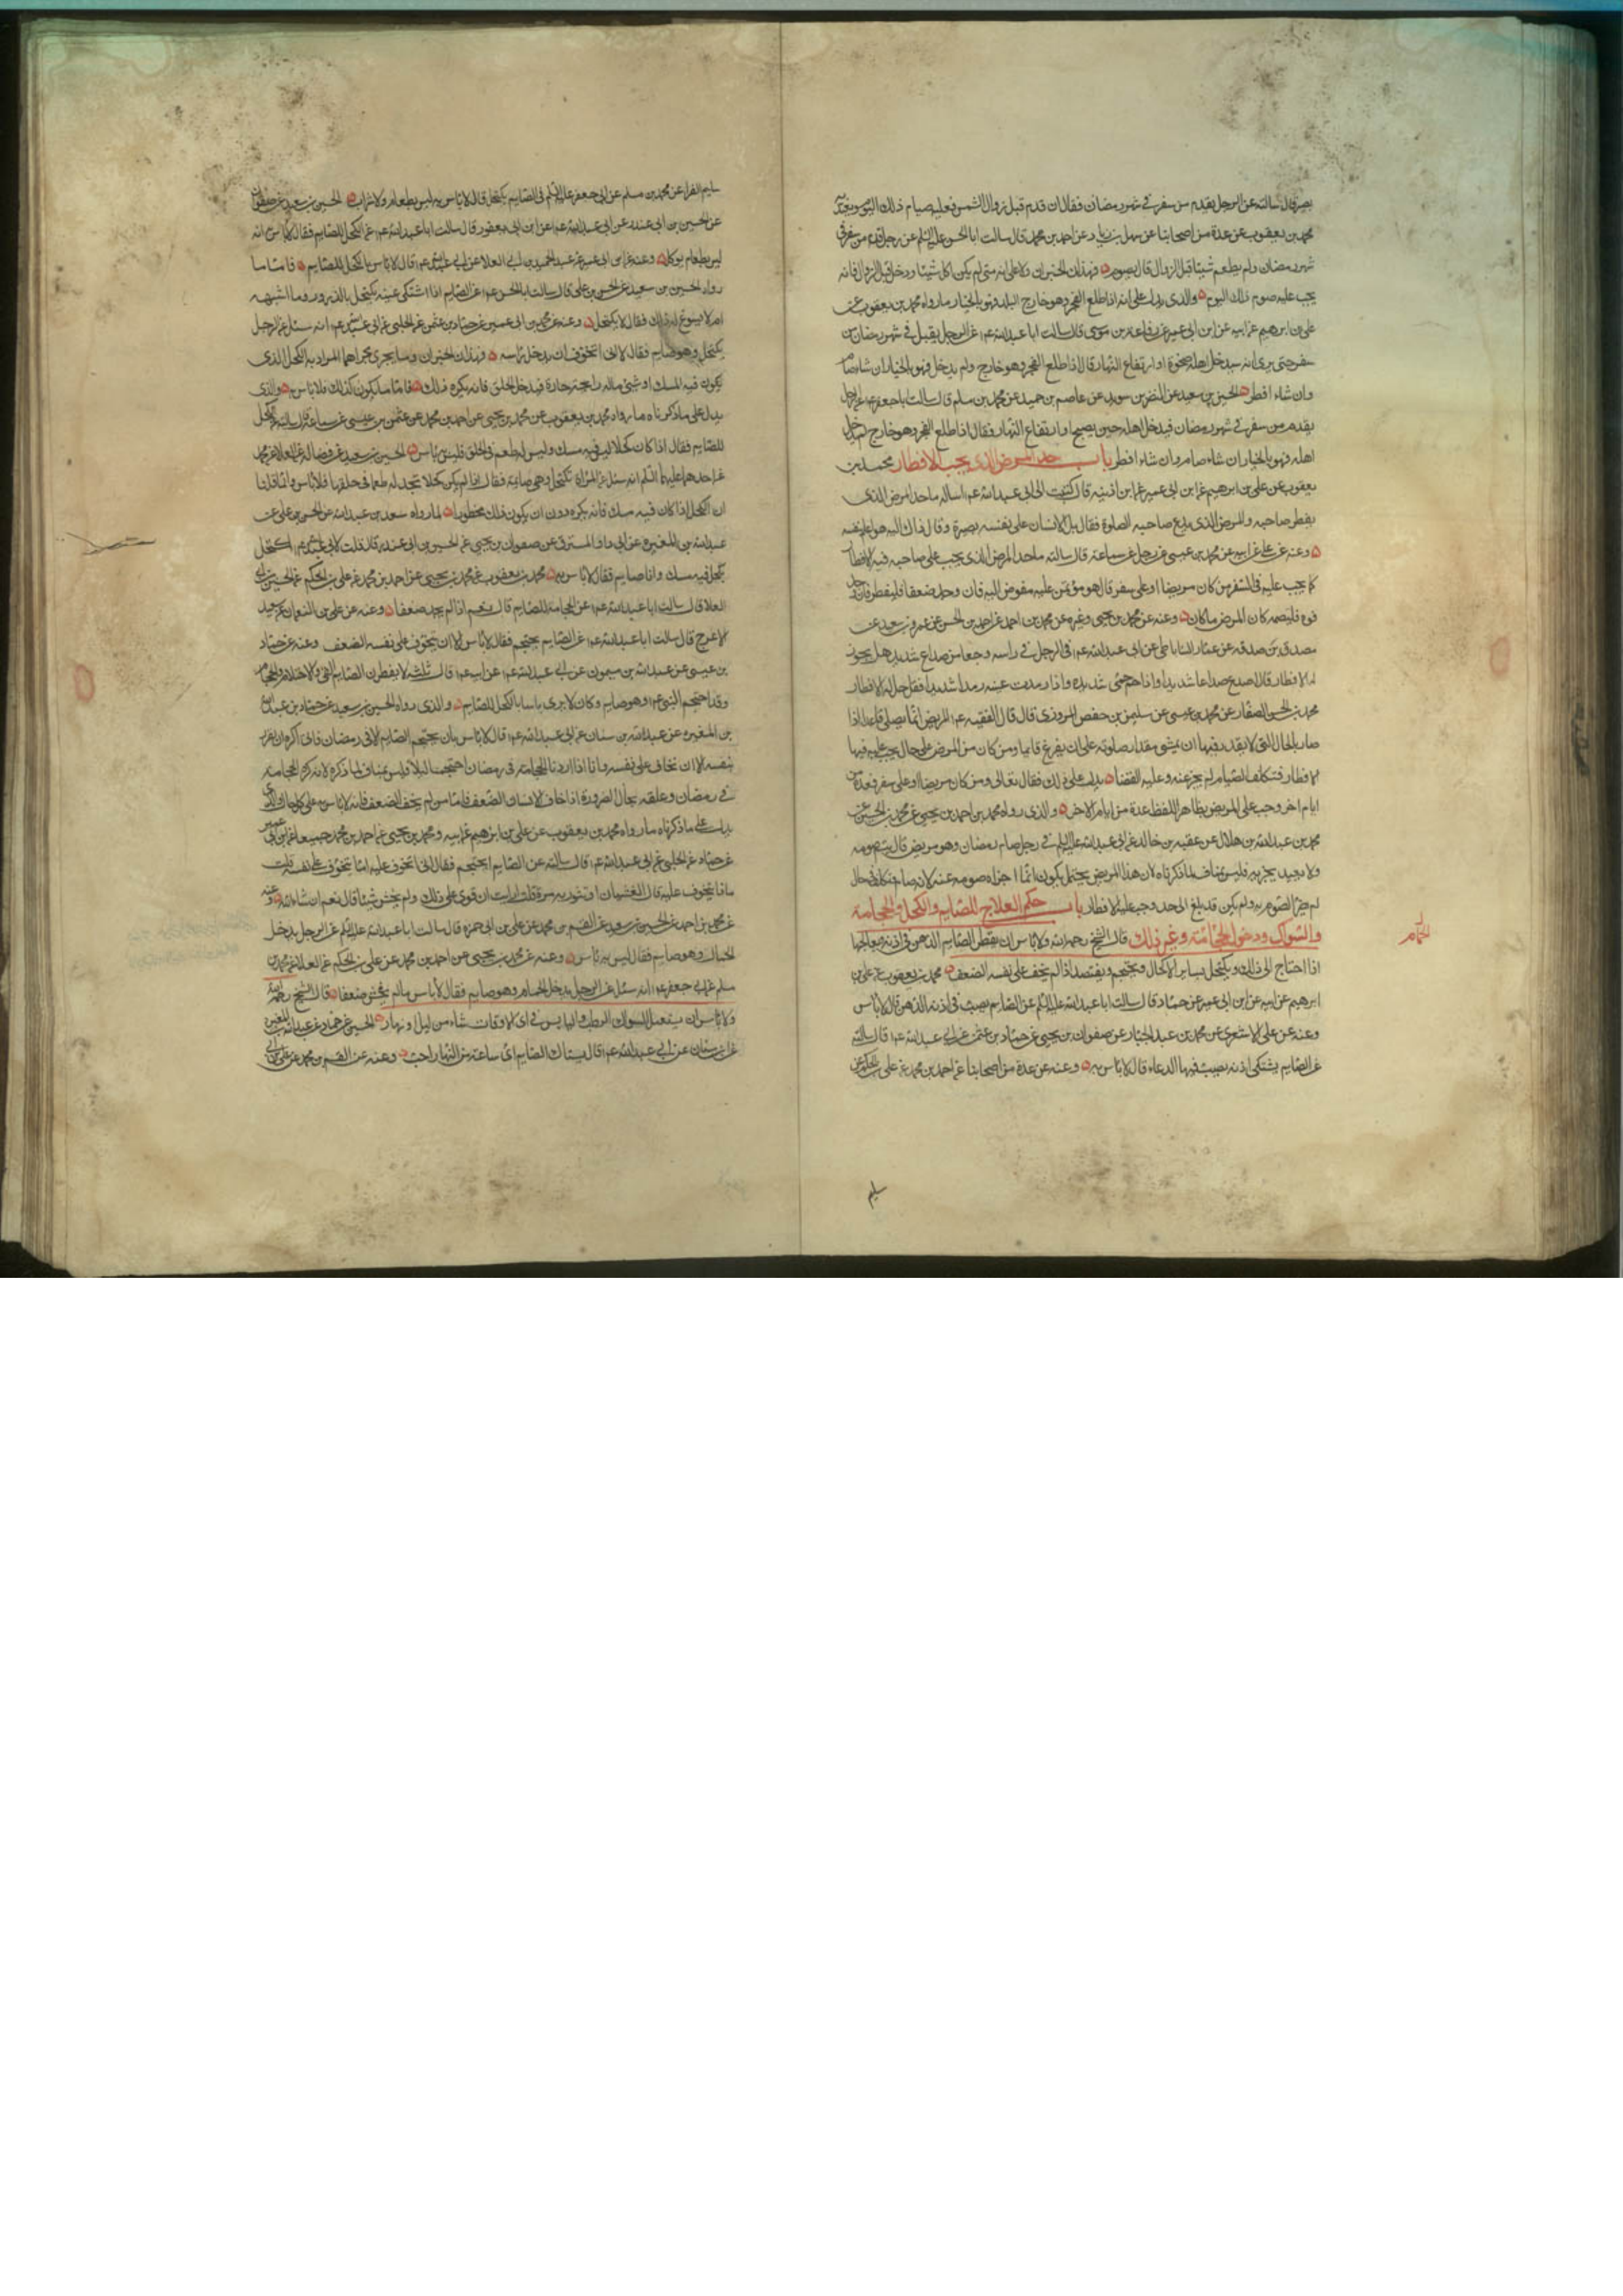 بصير قال سالته عن الرجل يقدم من سفر في شهر رمضان فقال ان قدم قبل زوال الشمس فعليه صيام ذلك اليوم ويعتد به
محمد بن يعقوب عن عدة من اصحابنا عن سهل بن زياد عن احمد بن محمد قال سالت ابا الحسن عليه السلم عن رجل قدم من سفر في
شهر رمضان ولم يطعم شيئا قبل الزوال قال يصوم فهذان الخبران دلا على انه متى لم يكن اكل شيئا ودخل قبل الزوال فانه
يجب عليه صوم ذلك اليوم والذي يدل على انه اذا طلع الفجر وهو خارج البلد فهو بالخيار ما رواه محمد بن يعقوب عن
علي بن ابرهيم عن ابيه عن ابن ابي عمير عن رفاعة بن موسى قال سالت ابا عبد الله ع م عن الرجل يقبل في شهر رمضان من
سفر حتى يرى انه سيدخل اهله ضحوة او ارتفاع النهار قال اذا طلع الفجر وهو خارج ولم يدخل فهو بالخيار ان شاء صام
وان شاء افطر الحسين بن سعيد عن النضر بن سويد عن عاصم بن حميد عن محمد بن مسلم قال سالت ابا جعفر ع م عن الرجل
يقدم من سفر في شهر رمضان فيدخل اهله حين يصبح او ارتفاع النهار فقال اذا طلع الفجر وهو خارج لم يدخل
اهله فهو بالخيار ان شاء صام وان شاء افطر باب حد المرض الذي يجب الافطار محمد بن
يعقوب عن علي بن ابرهيم عن ابن ابي عمير عن ابن اذينه قال كتبت الى ابي عبد الله ع م اساله ما حد المرض الذي
يفطر صاحبه والمرض الذي يدع صاحبه الصلوة فقال بل الانسان على نفسه بصيرة وقال ذاك اليه هو اعلم بنفسه
وعنه عن علي عن ابيه عن محمد بن عيسى عن رجل عن سماعة قال سالته ما حد المرض الذي يجب على صاحبه فيه الافطار
كما يجب عليه في السفر من كان مريضا او على سفر قال هو مؤتمن عليه مفوض اليه فان وجد ضعفا فليفطر فان وجد
قوه فليصمه كان المرض ما كان وعنه عن محمد بن يحيى وغيره عن محمد بن احمد عن احمد بن الحسن عن عمرو بن سعيد عن
مصدق بن صدقه عن عمار الساباطي عن ابي عبد الله ع م في الرجل في راسه وجعا من صداع شديد هل يجوز
له الافطار قال اذا صدع صداعا شديدا واذا حم حمى شديده واذا رمدت عينه رمدا شديدا فقد حل له الافطار
محمد بن الحسن الصفار عن محمد بن عيسى عن سليمن بن حفص المروزي قال قال الفقيه ع م المريض انما يصلي قاعدا اذا
صار بالحال التي لا يقدر فيها ان يمشي مقدار صلوته على ان يفرغ قائما ومن كان من المرض على حال يجب عليه فيها
الافطار فتكلف الصيام لم يجز عنه وعليه القضا يدل على ذلك فقال تعالى ومن كان مريضا او على سفر فعدة من
ايام اخر وجب على المريض بظاهر اللفظ عدة من ايام الاخر والذي رواه محمد بن احمد بن يحيى عن محمد بن الحسين عن
محمد بن عبد الله بن هلال عن عقبه بن خالد عن ابي عبد الله عليه السلم في رجل صام رمضان وهو مريض قال يتم صومه
ولا يعيد يجزيه فليس بمناف لما ذكرناه لان هذا المريض يحتمل يكون انما اجزاه صومه عنه لانه صام في حال
لم يضر الصوم به ولم يكن قد بلغ الى حد وجب عليه الافطار باب حكم العلاج للصايم والكحل والحجامة
والسواك ودخول الحمام وغير ذلك قال الشيخ رحمه الله ولا باس ان يقطر الصايم الدهن في اذنه يعالجها
اذا احتاج الى ذلك ويكتحل بساير الاكحال ويحتجم ويفتصد اذا لم يخف على نفسه الضعف محمد بن يعقوب عن علي بن
ابرهيم عن ابيه عن ابن ابي عمير عن حماد قال سالت ابا عبد الله عليه السلم عن الصايم يصب في اذنه الدهن قال لا باس
وعنه عن علي الاشعري عن محمد بن عبد الجبار عن صفوان بن يحيى عن حماد بن عثمن عن ابي عبد الله ع م قال سالته
عن الصايم يشتكي اذنه يصب فيها الدواء قال لا باس به وعنه عن عدة من اصحابنا عن احمد بن محمد عن علي بن الحكم عن
الحمام
سليم
سليم الفراء عن محمد بن مسلم عن ابي جعفر عليه السلم في الصايم يكتحل قال لا باس به ليس بطعام ولا شراب الحسين بن سعيد عن صفوان
عن الحسين بن ابي غندر عن ابن ابي يعفور قال سالت ابا عبد الله ع م عن الكحل للصايم فقال لا باس به انه
ليس بطعام يوكل وعنه عن ابن ابي عمير عن عبد الحميد بن ابي العلا عن ابي عبد الله ع م قال لا باس بالكحل للصايم فاما ما
رواه الحسين بن سعيد عن الحسن بن علي قال سالت ابا الحسن ع م عن الصايم اذا اشتكى عينه يكتحل بالذرور وما اشبهه
ام لا يسوغ له ذلك فقال لا يكتحل وعنه عن محمد بن ابي عمير عن حماد بن عثمن عن الحلبي عن ابي عبد الله ع م انه سئل عن الرجل
يكتحل وهو صايم فقال لا اني اتخوف ان يدخل راسه فهذان الخبران وما يجري مجراهما المراد به الكحل الذي
يكون فيه المسك او شيئ ماله رائحة حارة فيدخل الحلق فانه يكره ذلك فاما ما لم يكون كذلك فلا باس به والذي
يدل على ما ذكرناه ما رواه محمد بن يعقوب عن محمد بن يحيى عن احمد بن محمد عن عثمن بن عيسى عن سماعة قال سالته عن الكحل
للصايم فقال اذا كان كحلا ليس فيه مسك وليس له طعم في الحلق فليس به باس الحسين بن سعيد عن فضالة عن العلا عن محمد
عن احدهما عليهما السلم انه سئل عن المراة تكتحل وهي صايمة فقال اذا لم يكن كحلا تجد له طعما في حلقها فلا باس وانما قلنا
ان الكحل اذا كان فيه مسك فانه يكره دون ان يكون ذلك محظورا لما رواه سعد بن عبد الله عن الحسن بن علي عن
عبد الله بن المغيره عن ابي داود المسترق عن صفوان بن يحيى عن الحسين بن ابي غندر قال قلت لابي عبد الله ع م اكتحل
بكحل فيه مسك وانا صايم فقال لا باس به محمد بن يعقوب عن محمد بن يحيى عن احمد بن محمد عن علي بن الحكم عن الحسين بن ابي
العلا قال سالت ابا عبد الله ع م عن الحجامة للصايم قال نعم اذا لم يجد ضعفا وعنه عن علي بن النعمان عن سعيد
الاعرج قال سالت ابا عبد الله ع م عن الصايم يحتجم فقال لا باس الا ان يتخوف على نفسه الضعف وعنه عن حماد
بن عيسى عن عبد الله بن ميمون عن ابي عبد الله ع م عن ابيه ع م قال ثلثه لا يفطرن الصايم القيئ والاحتلام والحجامه
وقد احتجم النبي ع م وهو صايم وكان لا يرى باسا بالكحل للصايم والذي رواه الحسين بن سعيد عن حماد بن عبد الله
بن المغيره عن عبد الله بن سنان عن ابي عبد الله ع م قال لا باس بان يحتجم الصايم الا في رمضان فاني اكره ان يغرر
بنفسه الا ان يخاف على نفسه وانا اذا اردنا الحجامة في رمضان احتجمنا ليلا فليس بمناف لما ذكره لانه كره الحجامة
في رمضان وعلقه بحال الضرورة اذا خاف الانسان الضعف فاما من لم يخف الضعف فانه لا باس به على كل حال والذي
يدل على ما ذكرناه ما رواه محمد بن يعقوب عن علي بن ابرهيم عن ابيه ومحمد بن يحيى عن احمد بن محمد جميعا عن ابن ابي عمير
عن حماد عن الحلبي عن ابي عبد الله ع م قال سالته عن الصايم ايحتجم فقال اني اتخوف عليه اما يتخوف على نفسه قلت
ماذا يتخوف عليه قال الغشيان او تثور به مرة قلت ارايت ان قوي على ذلك ولم يخش شيئا قال نعم ان شاء الله وعنه
عن محمد بن احمد عن الحسين بن سعيد عن القسم بن محمد عن علي بن ابي حمزه قال سالت ابا عبد الله عليه السلم عن الرجل يدخل
الحمام وهو صايم فقال ليس به باس وعنه عن محمد بن يحيى عن احمد بن محمد عن علي بن الحكم عن العلا عن محمد بن
مسلم عن ابي جعفر ع م انه سئل عن الرجل يدخل الحمام وهو صايم فقال لا باس ما لم يخش ضعفا قال الشيخ رحمه الله
ولا باس ان يستعمل السواك الرطب واليابس في اي الاوقات شاء من ليل او نهار الحسين عن حماد عن عبد الله بن المغيره
عن ابن سنان عن ابي عبد الله ع م قال يستاك الصايم اي ساعة من النهار احب وعنه عن القسم بن محمد عن علي بن ابي